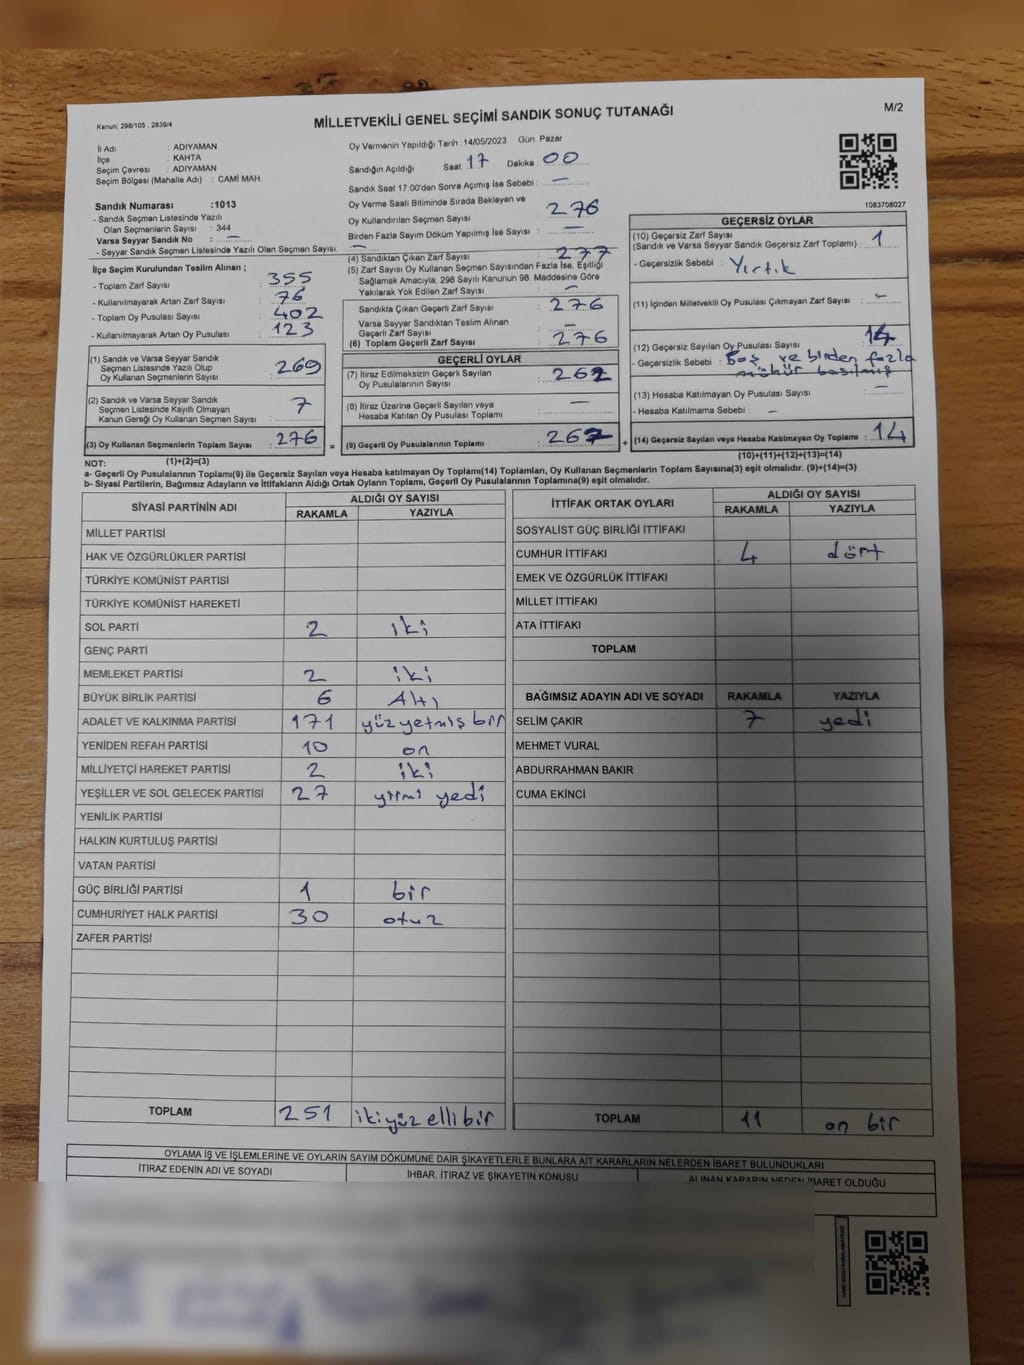 Kanun; 298/105 , 2839/4
MİLLETVEKİLİ GENEL SEÇİMİ SANDIK SONUÇ TUTANAĞI
M/2
İl Adı : ADIYAMAN
İlçe : KAHTA
Seçim Çevresi : ADIYAMAN
Seçim Bölgesi (Mahalle Adı) : CAMİ MAH.
Oy Vermenin Yapıldığı Tarih :14/05/2023 Gün: Pazar
Sandığın Açıldığı Saat 17 Dakika : 00
Sandık Saat 17.00'den Sonra Açımış İse Sebebi : —
Oy Verme Saati Bitiminde Sırada Bekleyen ve
Oy Kullandırılan Seçmen Sayısı : 276
Birden Fazla Sayım Döküm Yapılmış İse Sayısı : —
1083708027
Sandık Numarası :1013
- Sandık Seçmen Listesinde Yazılı
Olan Seçmenlerin Sayısı : 344
Varsa Seyyar Sandık No : —
- Seyyar Sandık Seçmen Listesinde Yazılı Olan Seçmen Sayısı: —
İlçe Seçim Kurulundan Teslim Alınan ;
- Toplam Zarf Sayısı : 355
- Kullanılmayarak Artan Zarf Sayısı : 76
- Toplam Oy Pusulası Sayısı : 402
- Kullanılmayarak Artan Oy Pusulası : 123
(1) Sandık ve Varsa Seyyar Sandık
Seçmen Listesinde Yazılı Olup
Oy Kullanan Seçmenlerin Sayısı : 269
(2) Sandık ve Varsa Seyyar Sandık
Seçmen Listesinde Kayıtlı Olmayan
Kanun Gereği Oy Kullanan Seçmen Sayısı : 7
(3) Oy Kullanan Seçmenlerin Toplam Sayısı : 276
(4) Sandıktan Çıkan Zarf Sayısı : 277
(5) Zarf Sayısı Oy Kullanan Seçmen Sayısından Fazla İse, Eşitliği
Sağlamak Amacıyla, 298 Sayılı Kanunun 98. Maddesine Göre
Yakılarak Yok Edilen Zarf Sayısı : —
Sandıkta Çıkan Geçerli Zarf Sayısı : 276
Varsa Seyyar Sandıktan Teslim Alınan
Geçerli Zarf Sayısı : —
(6) Toplam Geçerli Zarf Sayısı : 276
GEÇERLİ OYLAR
(7) İtiraz Edilmeksizin Geçerli Sayılan
Oy Pusulalarının Sayısı : 262
(8) İtiraz Üzerine Geçerli Sayılan veya
Hesaba Katılan Oy Pusulası Toplamı : —
= (9) Geçerli Oy Pusulalarının Toplamı : 262 +
GEÇERSİZ OYLAR
(10) Geçersiz Zarf Sayısı
(Sandık ve Varsa Seyyar Sandık Geçersiz Zarf Toplamı) : 1
- Geçersizlik Sebebi : Yırtık
(11) İçinden Milletvekili Oy Pusulası Çıkmayan Zarf Sayısı : —
(12) Geçersiz Sayılan Oy Pusulası Sayısı : 14
- Geçersizlik Sebebi : Boş ve birden fazla
mühür basılmış
(13) Hesaba Katılmayan Oy Pusulası Sayısı : —
- Hesaba Katılmama Sebebi : —
(14) Geçersiz Sayılan veya Hesaba Katılmayan Oy Toplamı : 14
NOT: (1)+(2)=(3)
(10)+(11)+(12)+(13)=(14)
a- Geçerli Oy Pusulalarının Toplamı(9) ile Geçersiz Sayılan veya Hesaba katılmayan Oy Toplamı(14) Toplamları, Oy Kullanan Seçmenlerin Toplam Sayısına(3) eşit olmalıdır. (9)+(14)=(3)
b- Siyasi Partilerin, Bağımsız Adayların ve İttifakların Aldığı Ortak Oyların Toplamı, Geçerli Oy Pusulalarının Toplamına(9) eşit olmalıdır.
SİYASİ PARTİNİN ADI ALDIĞI OY SAYISI
RAKAMLA YAZIYLA
MİLLET PARTİSİ
HAK VE ÖZGÜRLÜKLER PARTİSİ
TÜRKİYE KOMÜNİST PARTİSİ
TÜRKİYE KOMÜNİST HAREKETİ
SOL PARTİ 2 iki
GENÇ PARTİ
MEMLEKET PARTİSİ 2 iki
BÜYÜK BİRLİK PARTİSİ 6 Altı
ADALET VE KALKINMA PARTİSİ 171 yüzyetmiş bir
YENİDEN REFAH PARTİSİ 10 on
MİLLİYETÇİ HAREKET PARTİSİ 2 iki
YEŞİLLER VE SOL GELECEK PARTİSİ 27 yirmi yedi
YENİLİK PARTİSİ
HALKIN KURTULUŞ PARTİSİ
VATAN PARTİSİ
GÜÇ BİRLİĞİ PARTİSİ 1 bir
CUMHURİYET HALK PARTİSİ 30 otuz
ZAFER PARTİSİ
TOPLAM 251 ikiyüz elli bir
İTTİFAK ORTAK OYLARI ALDIĞI OY SAYISI
RAKAMLA YAZIYLA
SOSYALİST GÜÇ BİRLİĞİ İTTİFAKI
CUMHUR İTTİFAKI 4 dört
EMEK VE ÖZGÜRLÜK İTTİFAKI
MİLLET İTTİFAKI
ATA İTTİFAKI
TOPLAM
BAĞIMSIZ ADAYIN ADI VE SOYADI RAKAMLA YAZIYLA
SELİM ÇAKIR 7 yedi
MEHMET VURAL
ABDURRAHMAN BAKIR
CUMA EKİNCİ
TOPLAM 11 on bir
OYLAMA İŞ VE İŞLEMLERİNE VE OYLARIN SAYIM DÖKÜMÜNE DAİR ŞİKAYETLERLE BUNLARA AİT KARARLARIN NELERDEN İBARET BULUNDUKLARI
İTİRAZ EDENİN ADI VE SOYADI İHBAR, İTİRAZ VE ŞİKAYETİN KONUSU ALINAN KARARIN NEDEN İBARET OLDUĞU